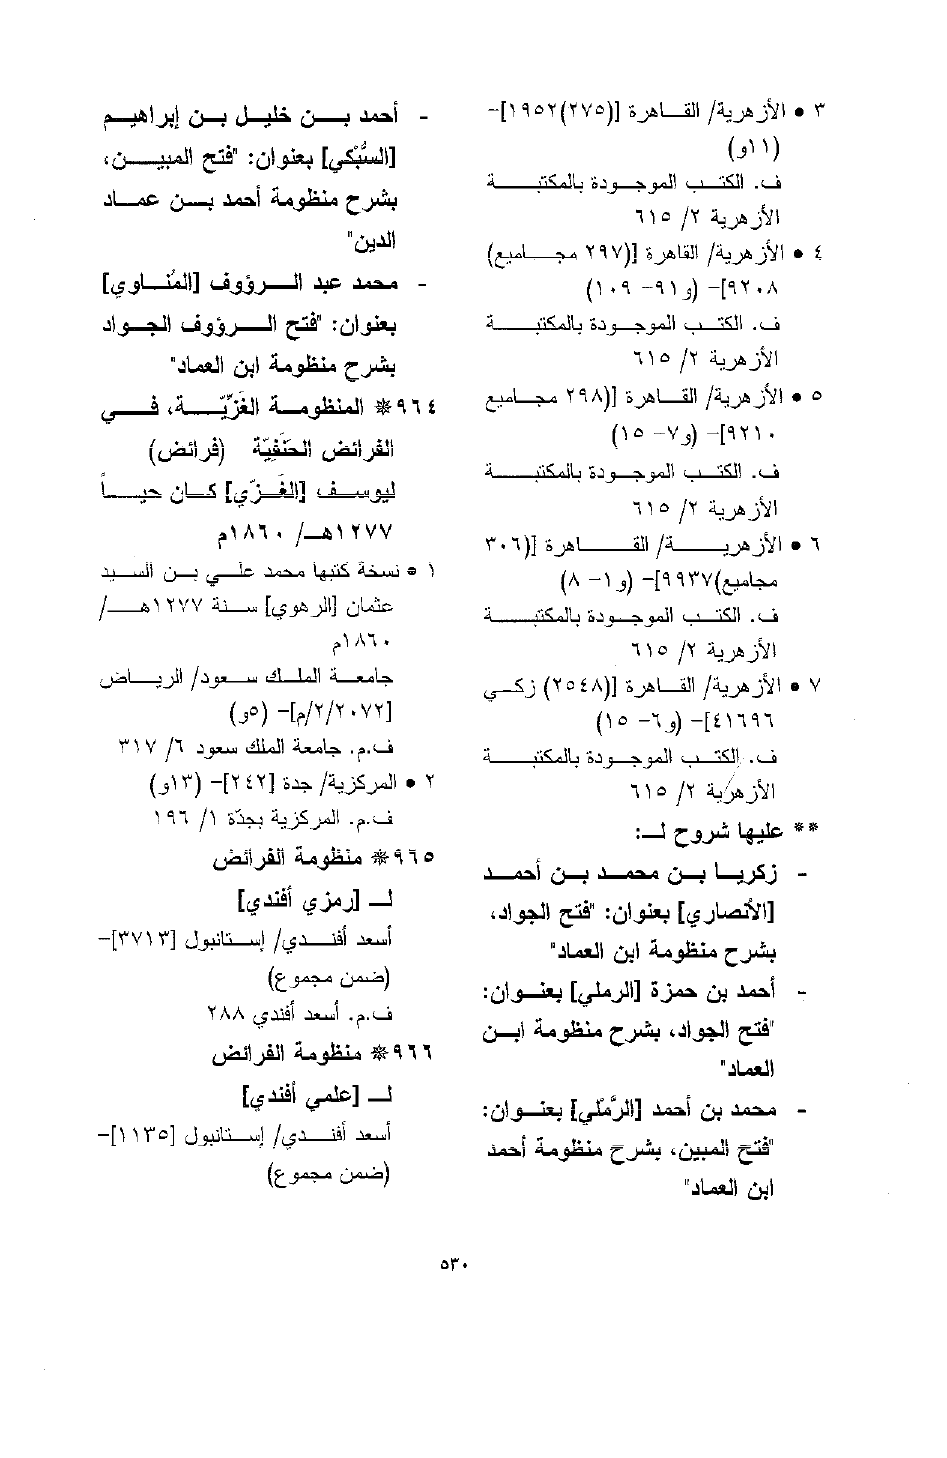 ٣ • الأزهرية/ القاهرة [(٢٧٥)١٩٥٢]-
(١١و)
ف. الكتب الموجودة بالمكتبة
الأزهرية ٢/ ٦١٥
٤ • الأزهرية/ القاهرة [(٢٩٧ مجاميع)
٩٢٠٨]- (و٩١- ١٠٩)
ف. الكتب الموجودة بالمكتبة
الأزهرية ٢/ ٦١٥
٥ • الأزهرية/ القاهرة [(٢٩٨ مجاميع
٩٢١٠]- (و٧- ١٥)
ف. الكتب الموجودة بالمكتبة
الأزهرية ٢/ ٦١٥
٦ • الأزهرية/ القاهرة [(٣٠٦
مجاميع)٩٩٣٧]- (و١- ٨)
ف. الكتب الموجودة بالمكتبة
الأزهرية ٢/ ٦١٥
٧ • الأزهرية/ القاهرة [(٢٥٤٨) زكي
٤١٦٩٦]- (و٦- ١٥)
ف. الكتب الموجودة بالمكتبة
الأزهرية ٢/ ٦١٥
** عليها شروح لـ:
- زكريا بن محمد بن أحمد
[الأنصاري] بعنوان: "فتح الجواد،
بشرح منظومة ابن العماد"
- أحمد بن حمزة [الرملي] بعنوان:
"فتح الجواد، بشرح منظومة ابن
العماد"
- محمد بن أحمد [الرَّمْلي] بعنوان:
"فتح المبين، بشرح منظومة أحمد
ابن العماد"
- أحمد بن خليل بن إبراهيم
[السُّبْكي] بعنوان: "فتح المبين،
بشرح منظومة أحمد بن عماد
الدين"
- محمد عبد الرؤوف [المُناوي]
بعنوان: "فتح الرؤوف الجواد
بشرح منظومة ابن العماد"
٩٦٤* المنظومة الغَزِّيّة، في
الفرائض الحَنَفِيّة (فرائض)
ليوسف [الغَزّي] كان حياً
١٢٧٧هـ/ ١٨٦٠م
١ • نسخة كتبها محمد علي بن السيد
عثمان [الرهوي] سنة ١٢٧٧هـ/
١٨٦٠م
جامعة الملك سعود/ الرياض
[٢/٢/٢٠٧٢/م]- (٥و)
ف.م. جامعة الملك سعود ٦/ ٣١٧
٢ • المركزية/ جدة [٢٤٢]- (١٣و)
ف.م. المركزية بجدّة ١/ ١٩٦
٩٦٥* منظومة الفرائض
لـ [رمزي أفندي]
أسعد أفندي/ إستانبول [٣٧١٣]-
(ضمن مجموع)
ف.م. أسعد أفندي ٢٨٨
٩٦٦* منظومة الفرائض
لـ [علمي أفندي]
أسعد أفندي/ إستانبول [١١٣٥]-
(ضمن مجموع)
٥٣٠